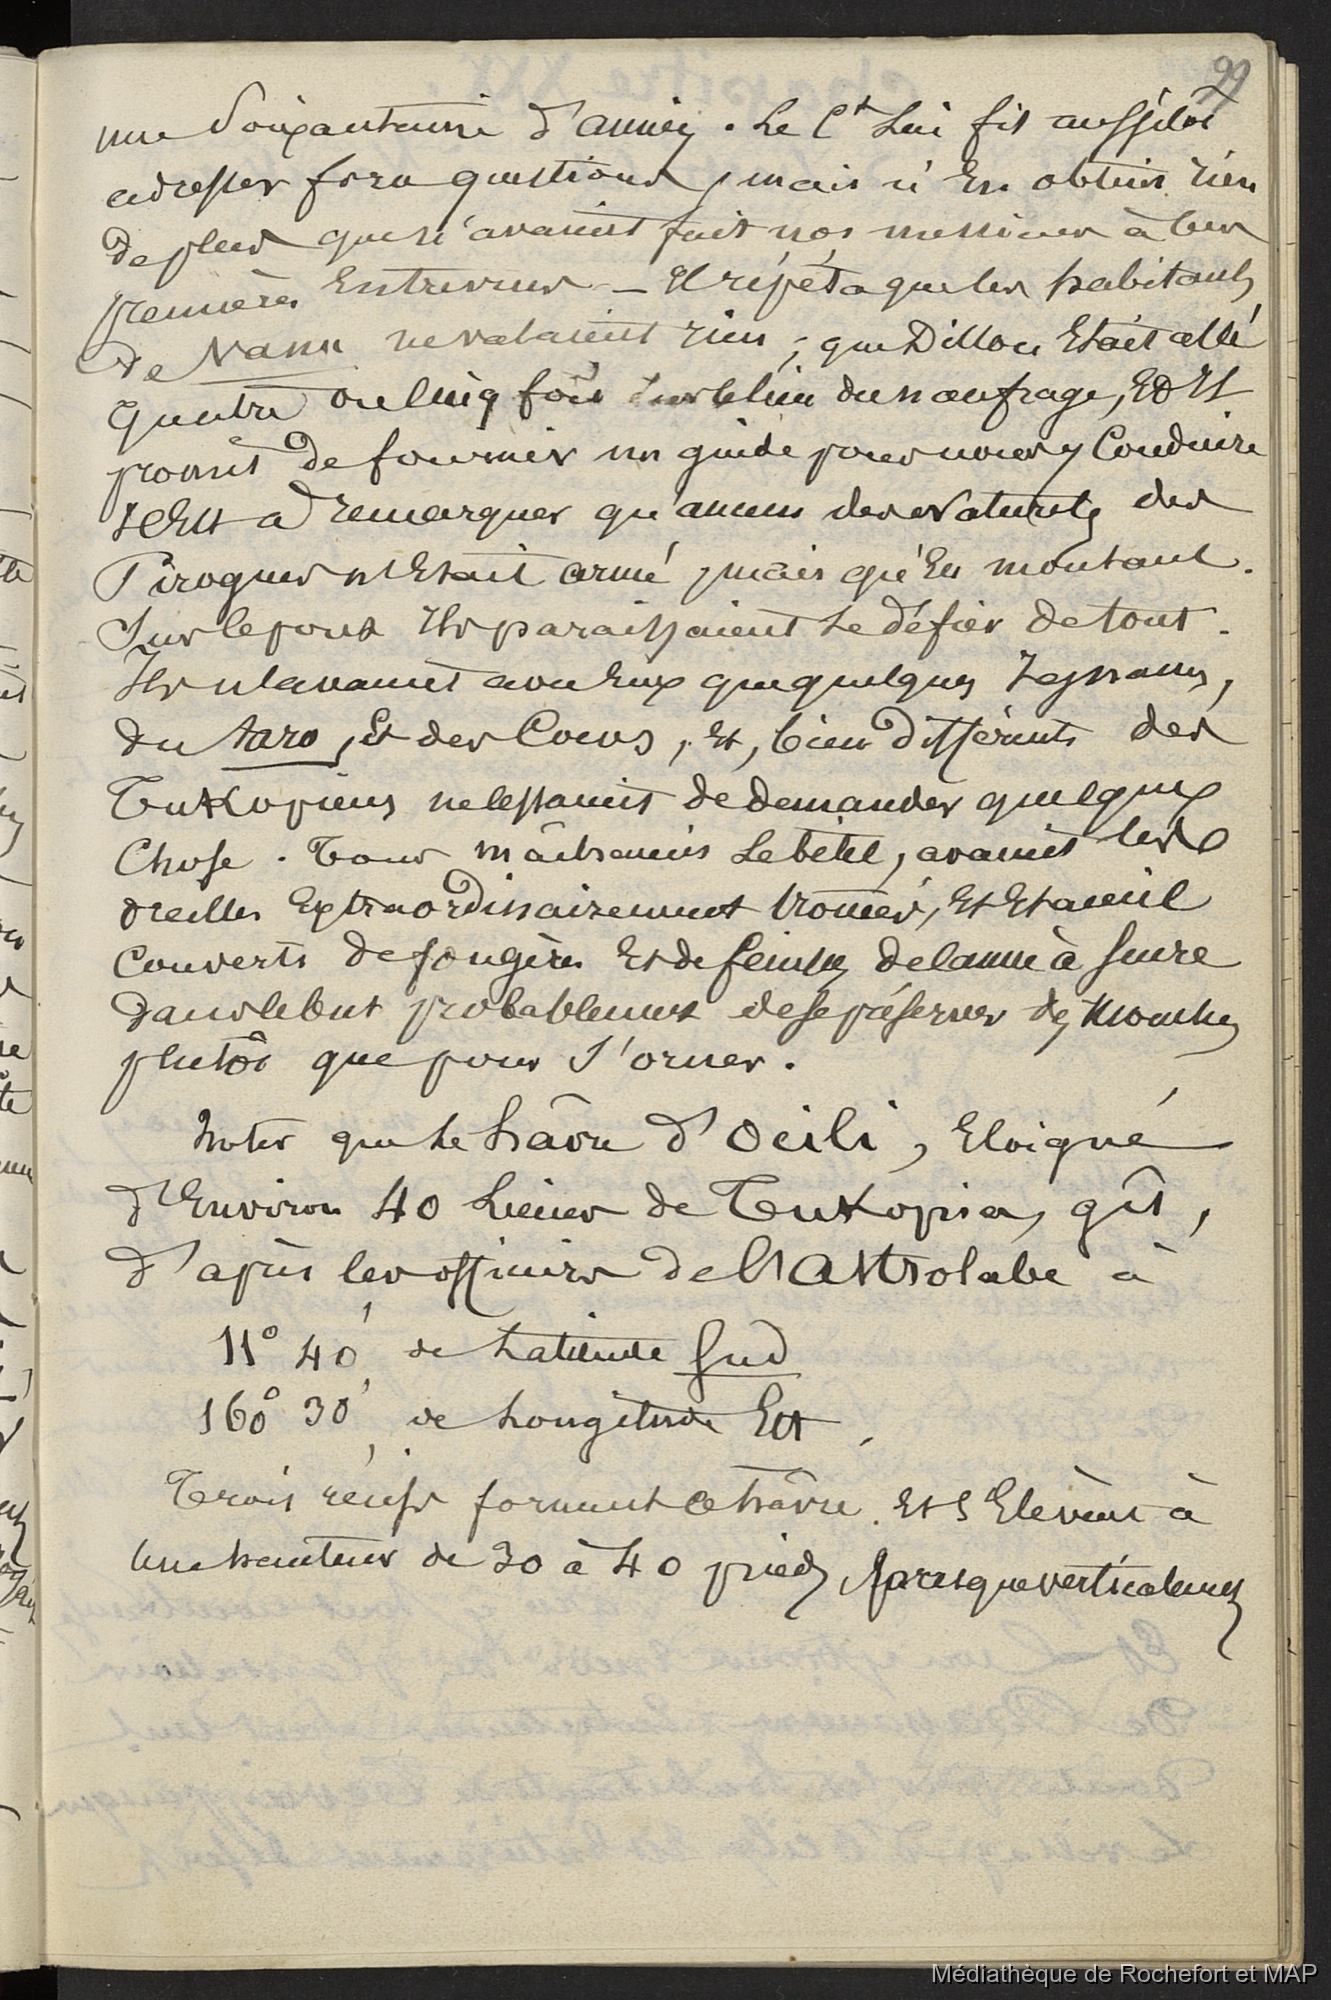 99
une soixantaine d'années. Le Ct Lui fit aussitôt
adresser force questions, mais n'En obtint rien
de plus que n'avaient fait nos messieurs à leur
première Entrevue — Il répéta que les habitants
de Nanu ne valaient rien ; que Dillon Etait allé
quatre ou Cinq fois sur le lieu du naufrage, Et Il
promit de fournir un guide pour nous y Conduire
Il Est à remarquer qu'aucun des Naturels des
Pirogues n'Etait armé, mais qu'En montant
Sur le pont Ils paraissaient se défier de tout.
Ils n'avaient avec Eux que quelques Ignames,
du taro, Et des Cocos, Et, bien différents des
Tukopiens ne cessaient de demander quelque
Chose. Tous mâchaient le bétel, avaient les
oreilles Extraordinairement trouées, Et Etaient
Couverts de fougères Et de feuilles de canne à sucre
dans le but probablement de se préserver des Mouches
plutôt que pour s'orner.
Noter que le hâvre d'Ocili, Eloigné
d'Environ 40 Lieues de Tukopia, gît,
d'après les officiers de l'Astrolabe à
11° 40' de Latitude Sud
160° 30' de Longitude Est.
Trois récifs forment ce hâvre Et s'Elèvent à
une hauteur de 30 à 40 pieds presque verticalement
Médiathèque de Rochefort et MAP